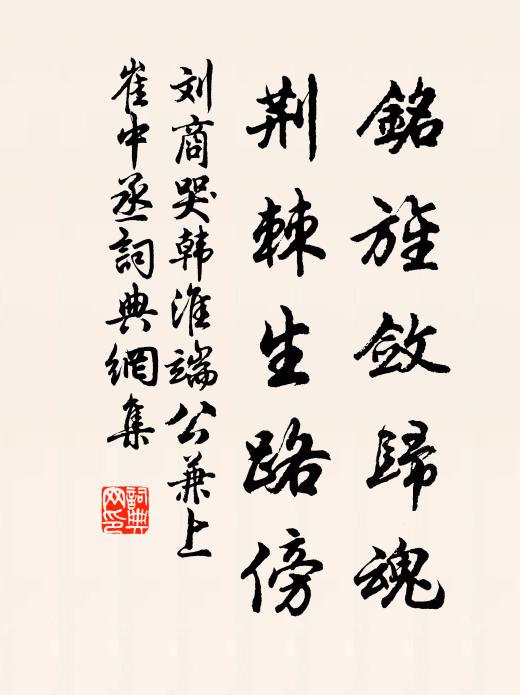 銘旌斂歸魂
荆棘生路傍
刘商哭韩淮端公兼上
崔中丞詞典網集
詞典网印